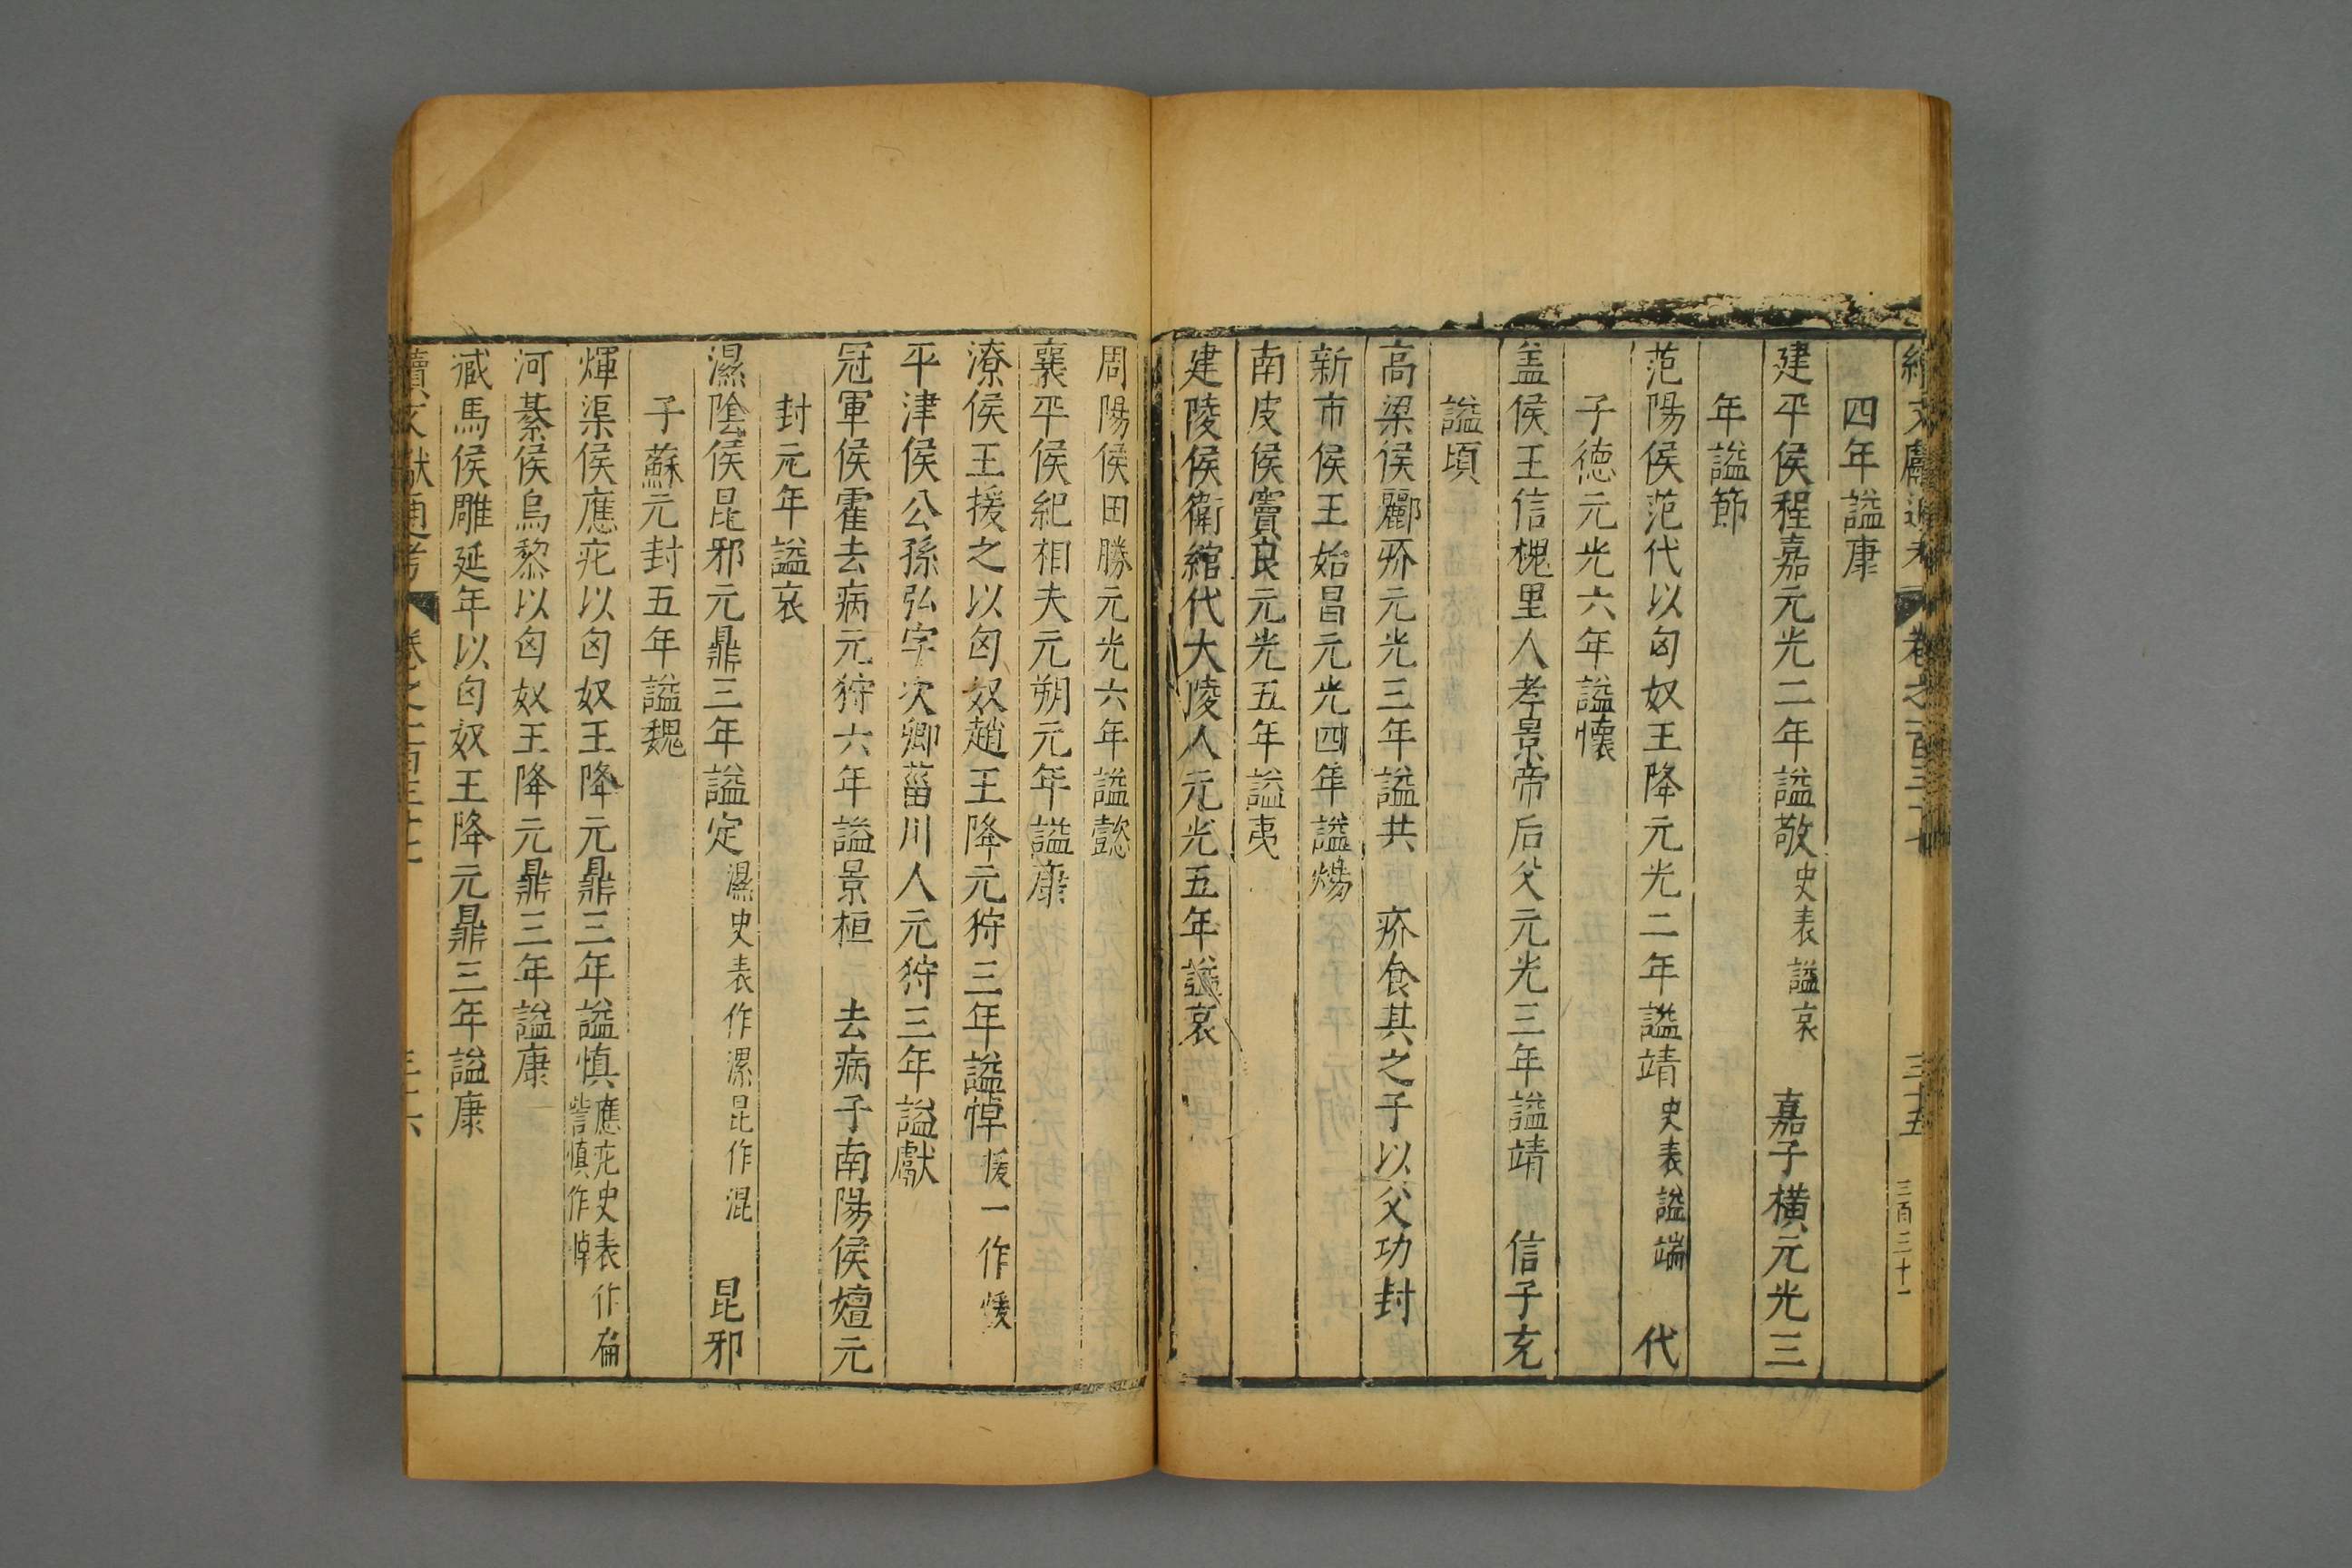 續文獻通考 卷之一百三十七 三十五 三百三十一
四年謚康
建平侯程嘉元光二年謚敬史表謚哀 嘉子橫元光三
年謚節
范陽侯范代以匈奴王降元光二年謚靖史表謚端 代
子德元光六年謚懷
盖侯王信槐里人孝景帝后父元光三年謚靖 信子充
謚頃
高梁侯酈疥元光三年謚共 疥食其之子以父功封
新市侯王始昌元光四年謚煬
南皮侯竇良元光五年謚夷
建陵侯衛綰代大陵人元光五年謚哀
周陽侯田勝元光六年謚懿
襄平侯紀相夫元朔元年謚康
潦侯王援之以匈奴趙王降元狩三年謚悼援一作煖
平津侯公孫弘字次卿菑川人元狩三年謚獻
冠軍侯霍去病元狩六年謚景桓 去病子南陽侯嬗元
封元年謚哀
濕陰侯昆邪元鼎三年謚定濕史表作漯昆作混 昆邪
子蘇元封五年謚魏
煇渠侯應疕以匈奴王降元鼎三年謚慎應疕史表作扁
訾慎作悼
河綦侯烏黎以匈奴王降元鼎三年謚康
臧馬侯雕延年以匈奴王降元鼎三年謚康
續文獻通考 卷之一百三十七 三十六